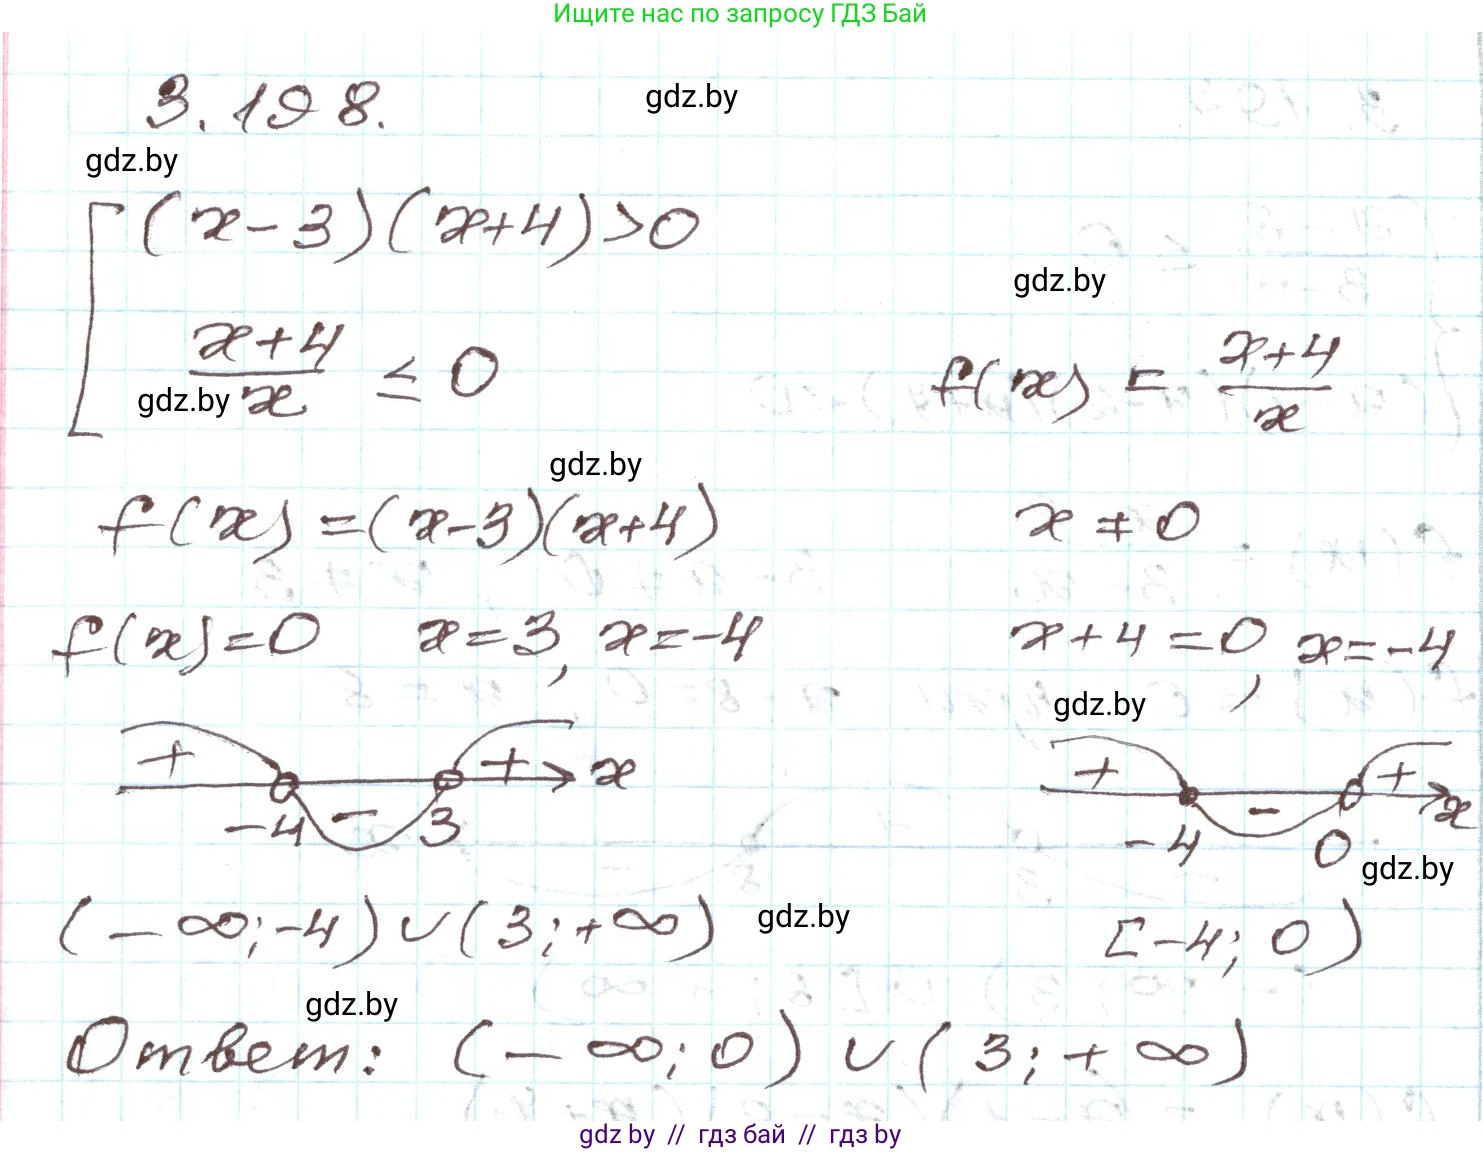 Ищите нас по запросу ГДЗ Бай
3.198.
gdz.by
gdz.by
(x-3)(x+4)>0
gdz.by
x+4
x
≤ 0
gdz.by
f(x) = x+4
x
gdz.by
f(x) =(x-3)(x+4)
x ≠ 0
f(x)=0 x=3, x=-4
x+4=0, x=-4
gdz.by
+ - + x
-4 3
+ - + x
-4 0
gdz.by
(-∞;-4)∪(3;+∞)
gdz.by
[-4; 0)
gdz.by
Ответ: (-∞; 0) ∪ (3; +∞)
gdz.by // гдз бай // гдз by